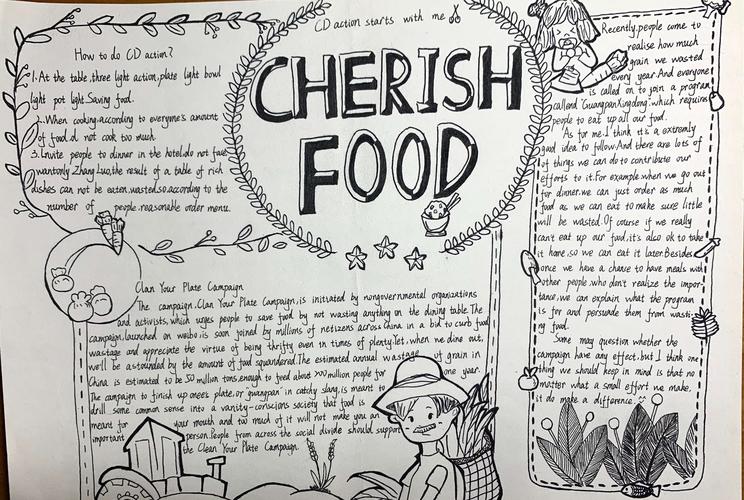 CD action starts with me
CHERISH
FOOD
How to do CD action?
1.At the table, three light action, plate light bowl
light pot light. Saving food.
2.When cooking, according to everyone's amount
of food, d not cook too much.
3.Invite people to dinner in the hotel, do not
wantonly Zhang Luo, the result of a table of rich
dishes can not be eaten, wasted, so according to the
number of people, reasonable order menu.
Clan Your Plate Campaign
The campaign, Clan Your Plate Campaign, is initiated by nongovernmental organizations
and activists, which urges people to save food by not wasting anything on the dining table. The
campaign, launched on weibo, is soon joined by millions of netizens across China in a bid to curb food
wastage and appreciate the virtue of being thrifty even in times of plenty. let, when we dine out,
we'll be astounded by the amount of food squandered. The estimated annual wastage of grain in
China is estimated to be 50 million tons, enough to feed about 200 million people for one year.
The campaign to finish up one's plate, or guangpan in catchy slang, is meant to
drill some common sense into a vanity-conscions society that food is
meant for your mouth and too much of it will not make you an
important person. People from across the social divide should support
the Clean Your Plate Campaign.
Recently, people come to
realise how much
grain we wasted
every year. And everyone
is called on to join a program
called "Guangpan Kingdong". which requires
people to eat up all our food.
As for me, I think it's a extremly
good idea to follow. And there are lots of
of things we can do to contribute our
efforts to it. For example, when we go out
for dinner, we can just order as much
food as we can eat to make sure little
will be wasted. Of course if we really
can't eat up our food, it's also ok to take
it home, so we can eat it later. Besides
once we have a chance to have meals with
other people who don't realize the impor-
tance, we can explain what the program
is for and persuade them from wasti-
ng food.
Some may question whether the
campaign have any effect, but I think one
thing we should keep in mind is that no
matter what a small effort we make,
it do make a difference.